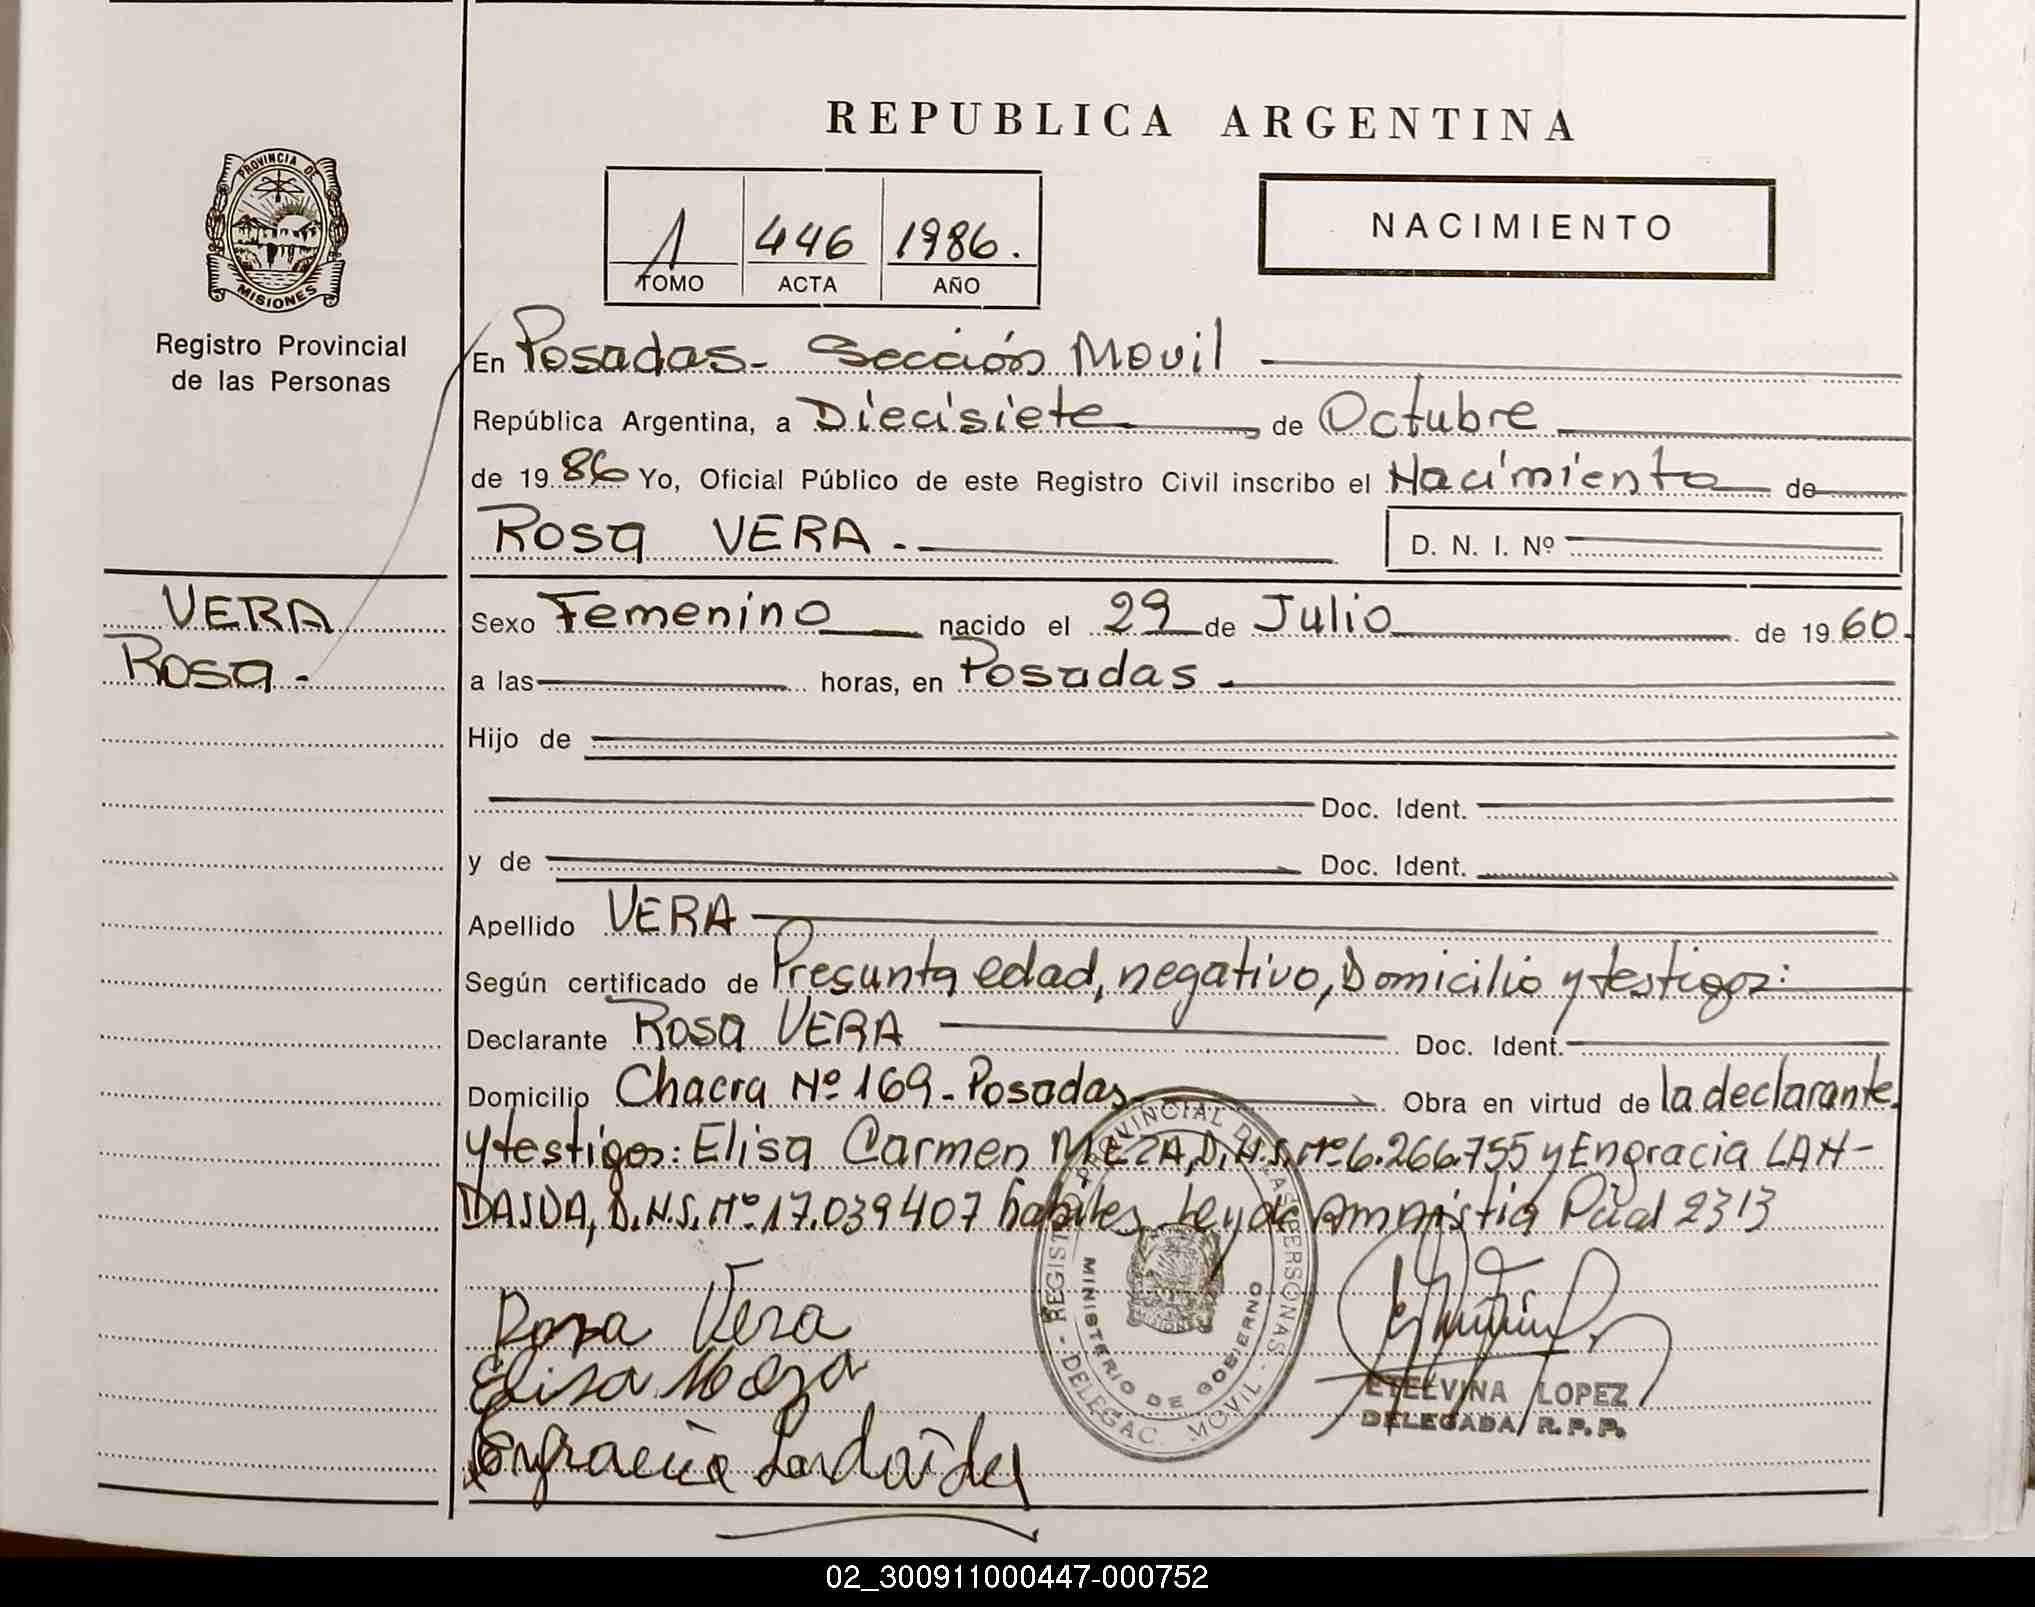 REPUBLICA ARGENTINA
PROVINCIA DE
MISIONES
Registro Provincial
de las Personas
1 446 1986.
TOMO ACTA AÑO
NACIMIENTO
En Posadas- Sección Movil
República Argentina, a Diecisiete de Octubre
de 1986 Yo, Oficial Público de este Registro Civil inscribo el Nacimiento de
Rosa VERA.- D. N. I. Nº
VERA
Rosa.-
Sexo Femenino nacido el 29 de Julio de 1960.
a las horas, en Posadas.
Hijo de
Doc. Ident.
y de Doc. Ident.
Apellido VERA
Según certificado de Presunta edad, negativo, Domicilio y testigos:
Declarante Rosa VERA Doc. Ident.
Domicilio Chacra Nº 169-Posadas Obra en virtud de la declarante
y testigos: Elisa Carmen MEZA, D.N.I. Nº 6.266.755 y Engracia LAN-
DAIDA, D.N.I. Nº 17.039407 habiles Ley de Amnistia Pcial 2313
Rosa Vera
Elisa Meza
Engracia
REGISTRO PROVINCIAL DE LAS PERSONAS - DELEGAC. MOVIL -
MINISTERIO DE GOBIERNO
ETELVINA LOPEZ
DELEGADA R.P.P.
02_300911000447-000752